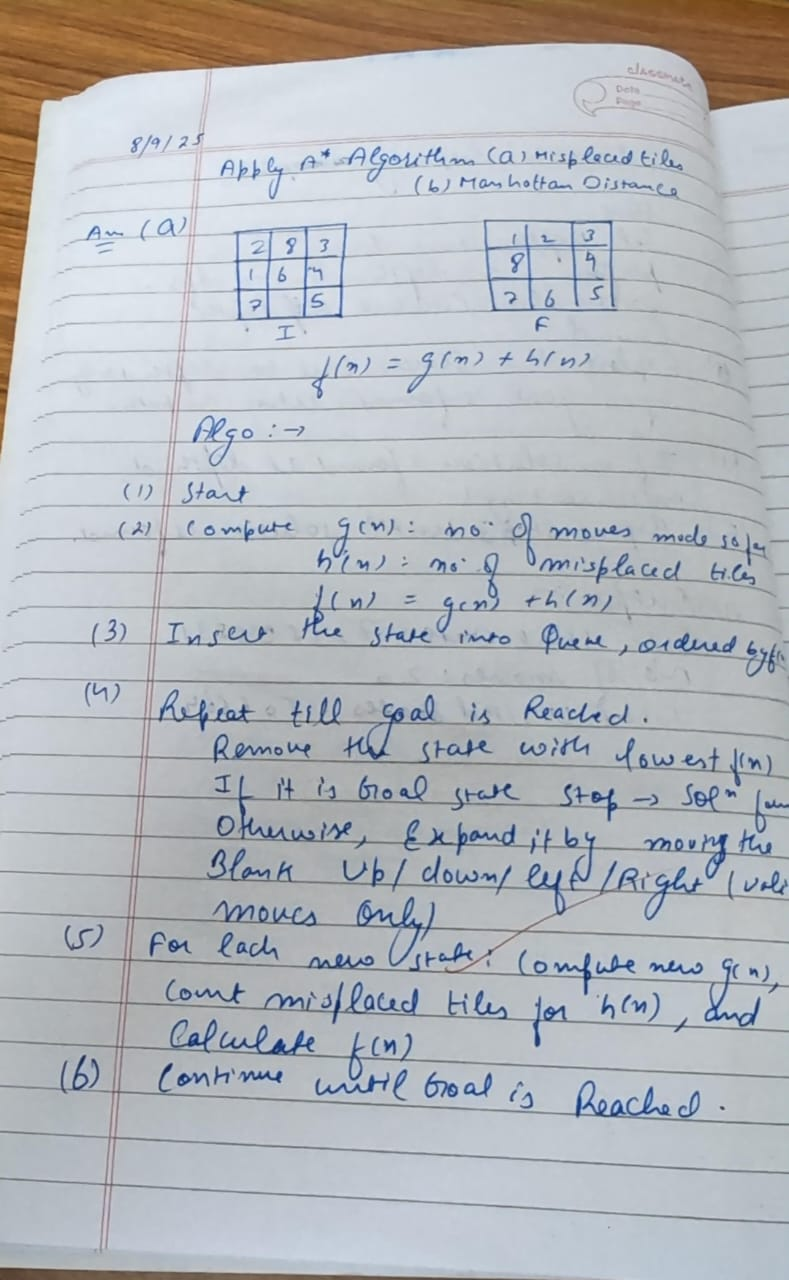 classmate
Date
Page
8/9/25
Apply A* Algorithm (a) Misplaced tiles
(b) Manhattan Distance
Ans (a)
2 8 3
1 6 4
7 5
I
1 2 3
8 . 4
7 6 5
F
f(n) = g(n) + h(n)
Algo :→
(1) Start
(2) Compute g(n): no. of moves made so far
h(n): no. of misplaced tiles
f(n) = g(n) + h(n)
(3) Insert the state into Queue, ordered by f
(4) Repeat till goal is Reached.
Remove the state with lowest f(n)
If it is Goal state Stop → Solⁿ
Otherwise, Expand it by moving the
Blank Up/down/left/Right (vali
moves only)
(5) For each new state: Compute new g(n),
Count misplaced tiles for h(n), and
Calculate f(n)
(6) Continue until Goal is Reached.